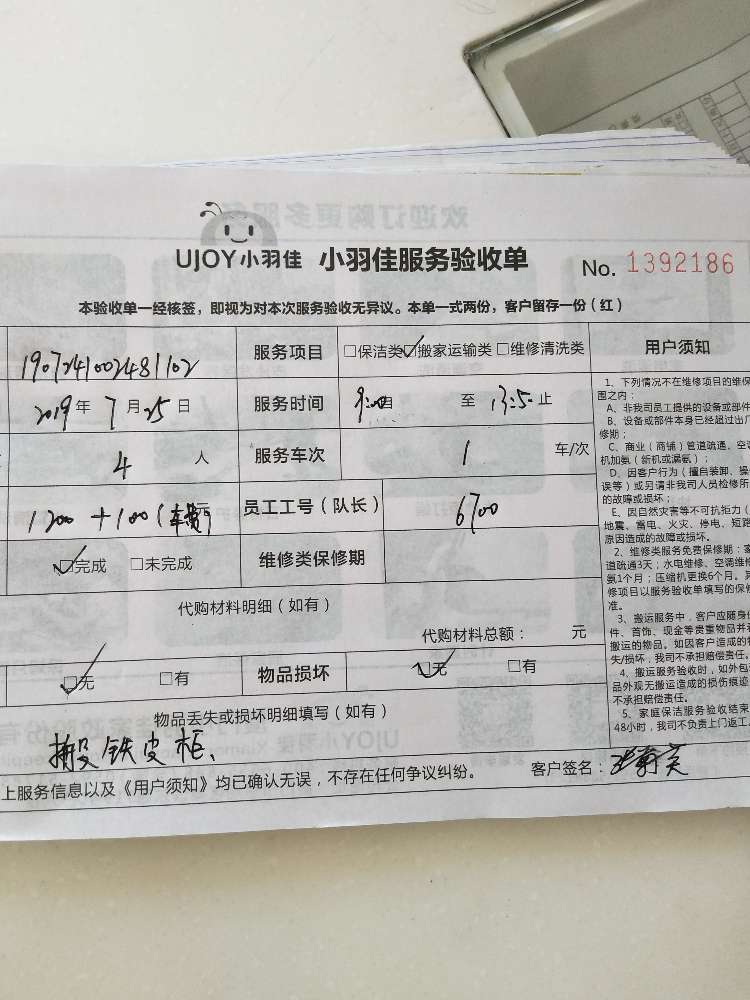 UJOY小羽佳 小羽佳服务验收单 No. 1392186
本验收单一经核签，即视为对本次服务验收无异议。本单一式两份，客户留存一份（红）
1907241002481102 服务项目 □保洁类☑搬家运输类□维修清洗类
2019年7月25日 服务时间 至 止
4人 服务车次 1 车/次
1200+100(车费) 员工工号（队长） 6700
☑完成 □未完成 维修类保修期
代购材料明细（如有）
代购材料总额： 元
☑无 □有 物品损坏 ☑无 □有
物品丢失或损坏明细填写（如有）
搬铁皮柜、
上服务信息以及《用户须知》均已确认无误，不存在任何争议纠纷。 客户签名：
用户须知
1、下列情况不在维修项目的维保
围之内：
A、非我司员工提供的设备或部件
B、设备或部件本身已经超过出厂
修期；
C、商业（商铺）管道疏通、空调
机加氨（新机或漏氨）；
D、因客户行为（擅自装卸、操
误等）或另请非我司人员检修所
的故障或损坏；
E、因自然灾害等不可抗拒力（
地震、雷电、火灾、停电、短路
原因造成的故障或损坏。
2、维修类服务免费保修期：家
道疏通3天；水电维修、空调维修
氨1个月；压缩机更换6个月。其
修项目以服务验收单填写的保修
准。
3、搬运服务中，客户应随身
件、首饰、现金等贵重物品并
搬运的物品。如因客户造成的物
失/损坏，我司不承担赔偿责任。
4、搬运服务验收时，如外包
品外观无搬运造成的损伤痕迹
不承担赔偿责任。
5、家庭保洁服务验收结束
48小时，我司不负责上门返工。